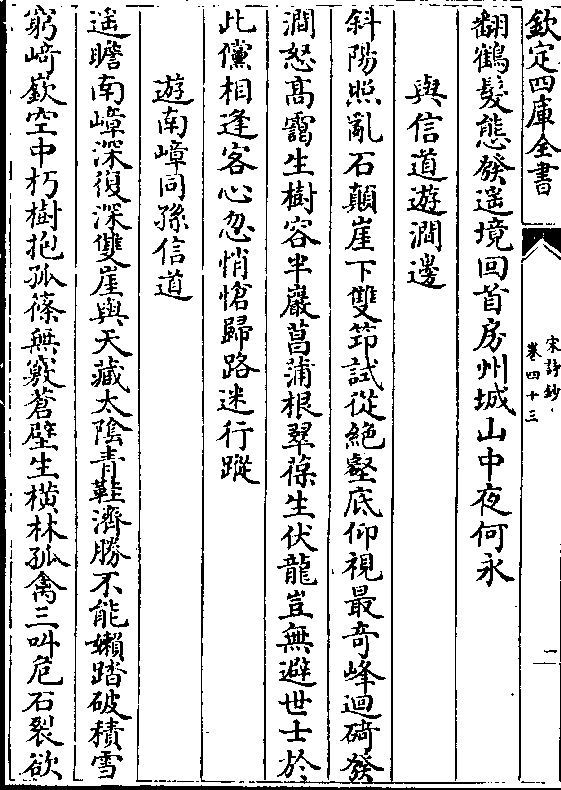 欽定四庫全書
宋詩鈔
卷四十三
一
翻鶴髮態發遥境回首房州城山中夜何永
與信道遊澗邊
斜陽照亂石顛崖下雙筇試從絶壑底仰視最奇峰迴碕發
澗怒髙靄生樹容半巖菖蒲根翠葆生伏龍豈無避世士於
此儻相逢客心忽悄愴歸路迷行蹤
遊南嶂同孫信道
遥瞻南嶂深復深雙崖與天藏太陰青鞵濟勝不能嬾踏破積雪
窮崎嶔空中朽樹抱孤篠無數蒼壁生横林孤禽三叫危石裂欲